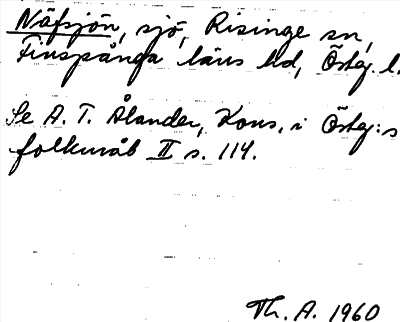 Näfsjön, sjö, Risinge sn,
Finspånga läns hd, Östg. l.
Se A. T. Ålander, Kons. i Östg:s
folkmål II s. 114.
Th. A. 1960